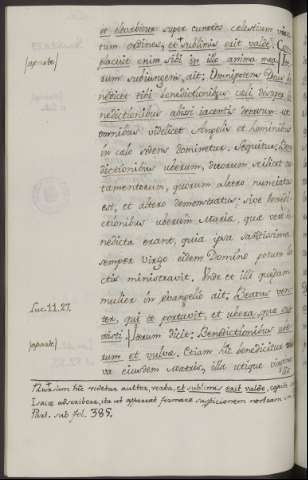 et exaltatus super cunctos celestium virtu
tum ordines, et + sublimis erit valde. Com
placuit enim sibi in illo anima mea
[aparte] rum subiungens, ait: Omnipotens Deus be
nedicet tibi benedictionibus celi desuper, be
nedictionibus abissi iacentis deorsum: ut
omnibus videlicet Angelis et hominibus
in celo sedens dominetur. Sequitur: Bene
dictionibus uberum, duorum scilicet tes
tamentorum, quorum altero nunciatus
est, et altero demonstratus; sive benedi
ctionibus uberum Maria, que vere be
nedicta erant, quia ipsa sanctissima
semper virgo eidem Domino potum la
ctis ministravit. Unde et illi quedam
mulier in evangelio ait: Beatus ven
Luc. 11. 27. ter, qui te portavit, et ubera, que su
xisti. Iterum dicit: Benedictionibus ube
[aparte] rum et vulve. Etiam hic benedicitur vul
va eiusdem Matris, illa utique virginea
+ Quoniam hic videtur auctor, verba, et sublimis erit valde,
Isaie adscribere, ita ut apparet formare
Part. sub fol. 385.